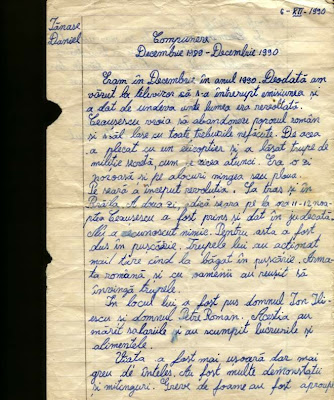 6-XII-1990
Tănase
Daniel
Compunere
Decembrie 1989-Decembrie 1990
Eram în Decembrie în anul 1990. Deodată am
văzut la televizor că s-a întrerupt emisiunea și
a dat de undeva unde lumea era revoltată.
Ceaușescu vroia să abandoneze poporul român
și să-l lase cu toate treburile nefăcute. De acea
a plecat cu un elicopter și a lăsat trupe de
miliție secretă, cum se zicea atunci. Era o zi
noroasă și pe alocuri ningea sau ploua.
Pe seară a început revoluția. Sa tras și în
Brăila. A doua zi, adică seara pe la ora 11-12 noa-
ptea Ceaușescu a fost prins și dat în judecată.
Nu a recunoscut nimic. Pentru asta a fost
dus în pușcărie. Trupele lui au acționat
mai tare când la băgat în pușcărie. Arma-
ta română și cu oamenii au reușit să
învingă trupele.
În locul lui a fost pus domnul Ion Ili-
escu și domnul Petre Roman. Aceștia au
mărit salariile și au scumpit lucrurile și
alimentele.
Viața a fost mai ușoară dar mai
greu de înteles. Au fost multe demonstații
și mitinguri. Greve de foame au fost aproape